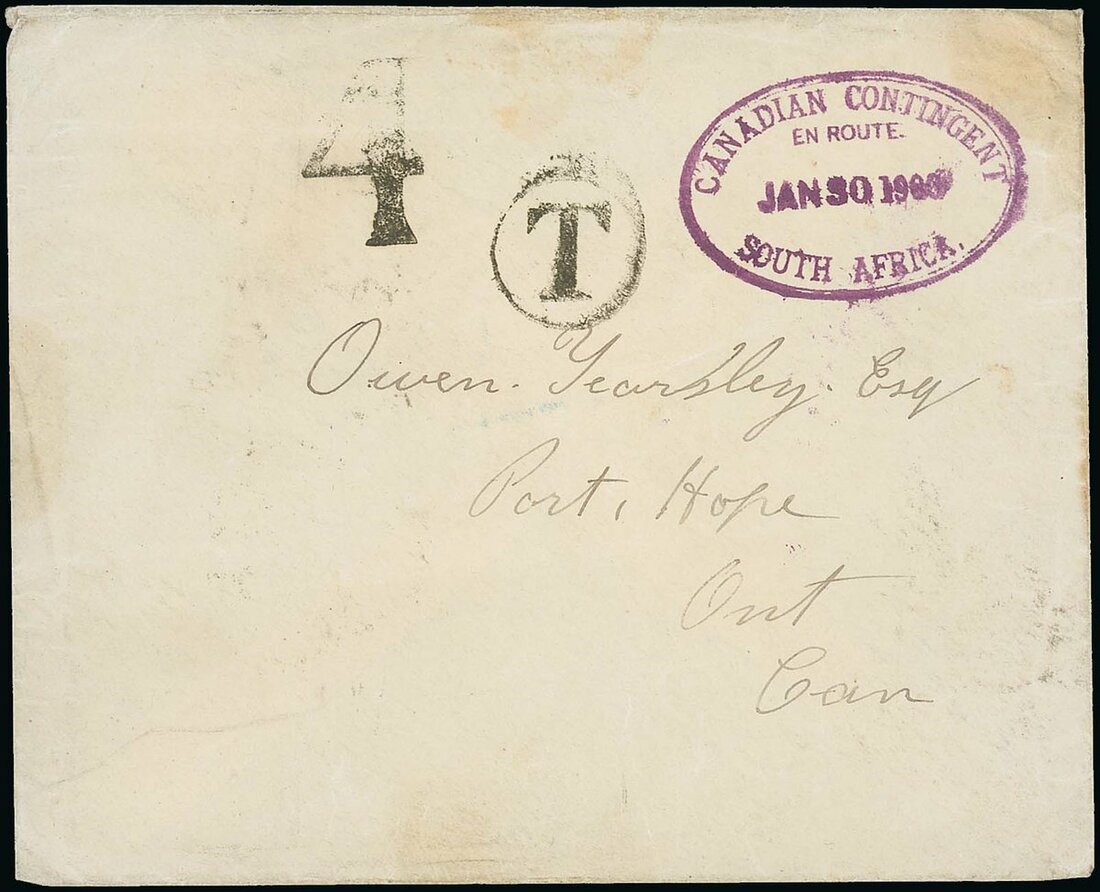 4
T
CANADIAN CONTINGENT
EN ROUTE.
JAN 30 1900
SOUTH AFRICA.
Owen. Yearsley. Esq
Port, Hope
Ont
Can